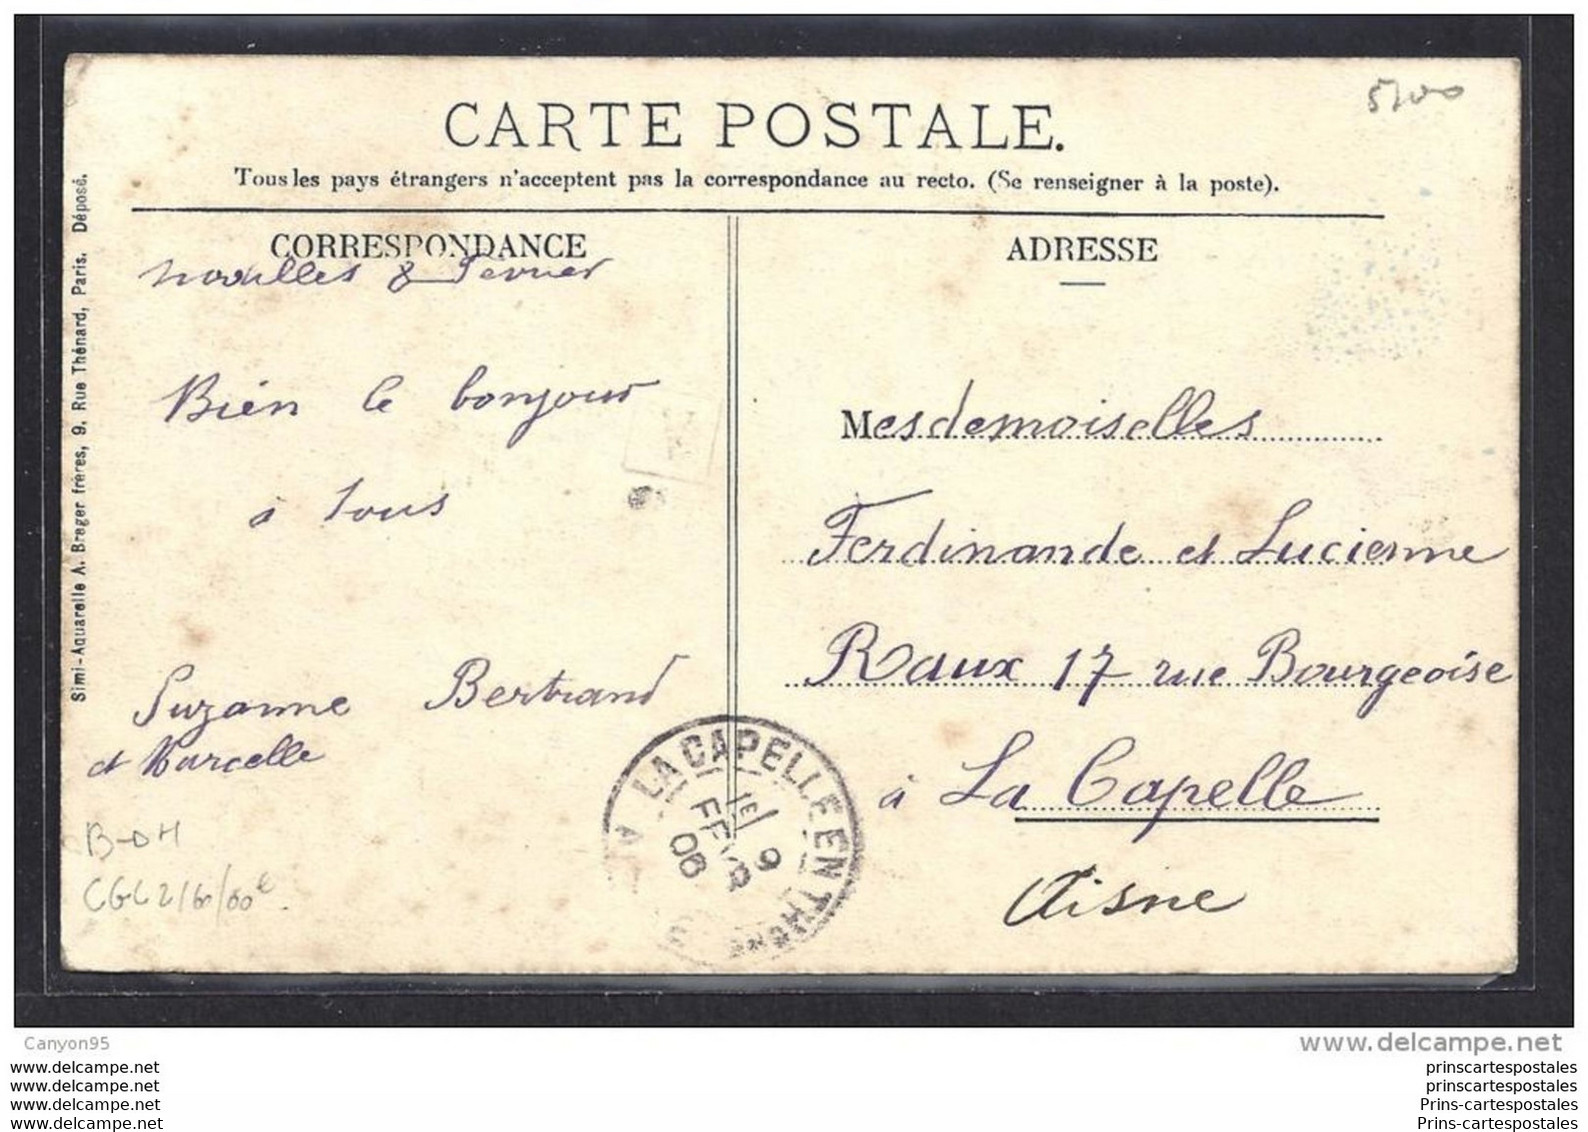 CARTE POSTALE.
Tous les pays étrangers n'acceptent pas la correspondance au recto. (Se renseigner à la poste).
Simi-Aquarelle A. Breger frères, 9, Rue Thénard, Paris. Déposé.
CORRESPONDANCE
8 Février
Bien le bonjour
à tous
Suzanne Bertrand
et Marcelle
ADRESSE
Mesdemoiselles
Ferdinande et Lucienne
Raux 17 rue Bourgeoise
à La Capelle
Aisne
LA CAPELLE EN THIÉ
9
FEVR
08
B-DH
Canyon95
www.delcampe.net
www.delcampe.net
www.delcampe.net
www.delcampe.net
www.delcampe.net
prinscartespostales
prinscartespostales
Prins-cartespostales
Prins-cartespostales